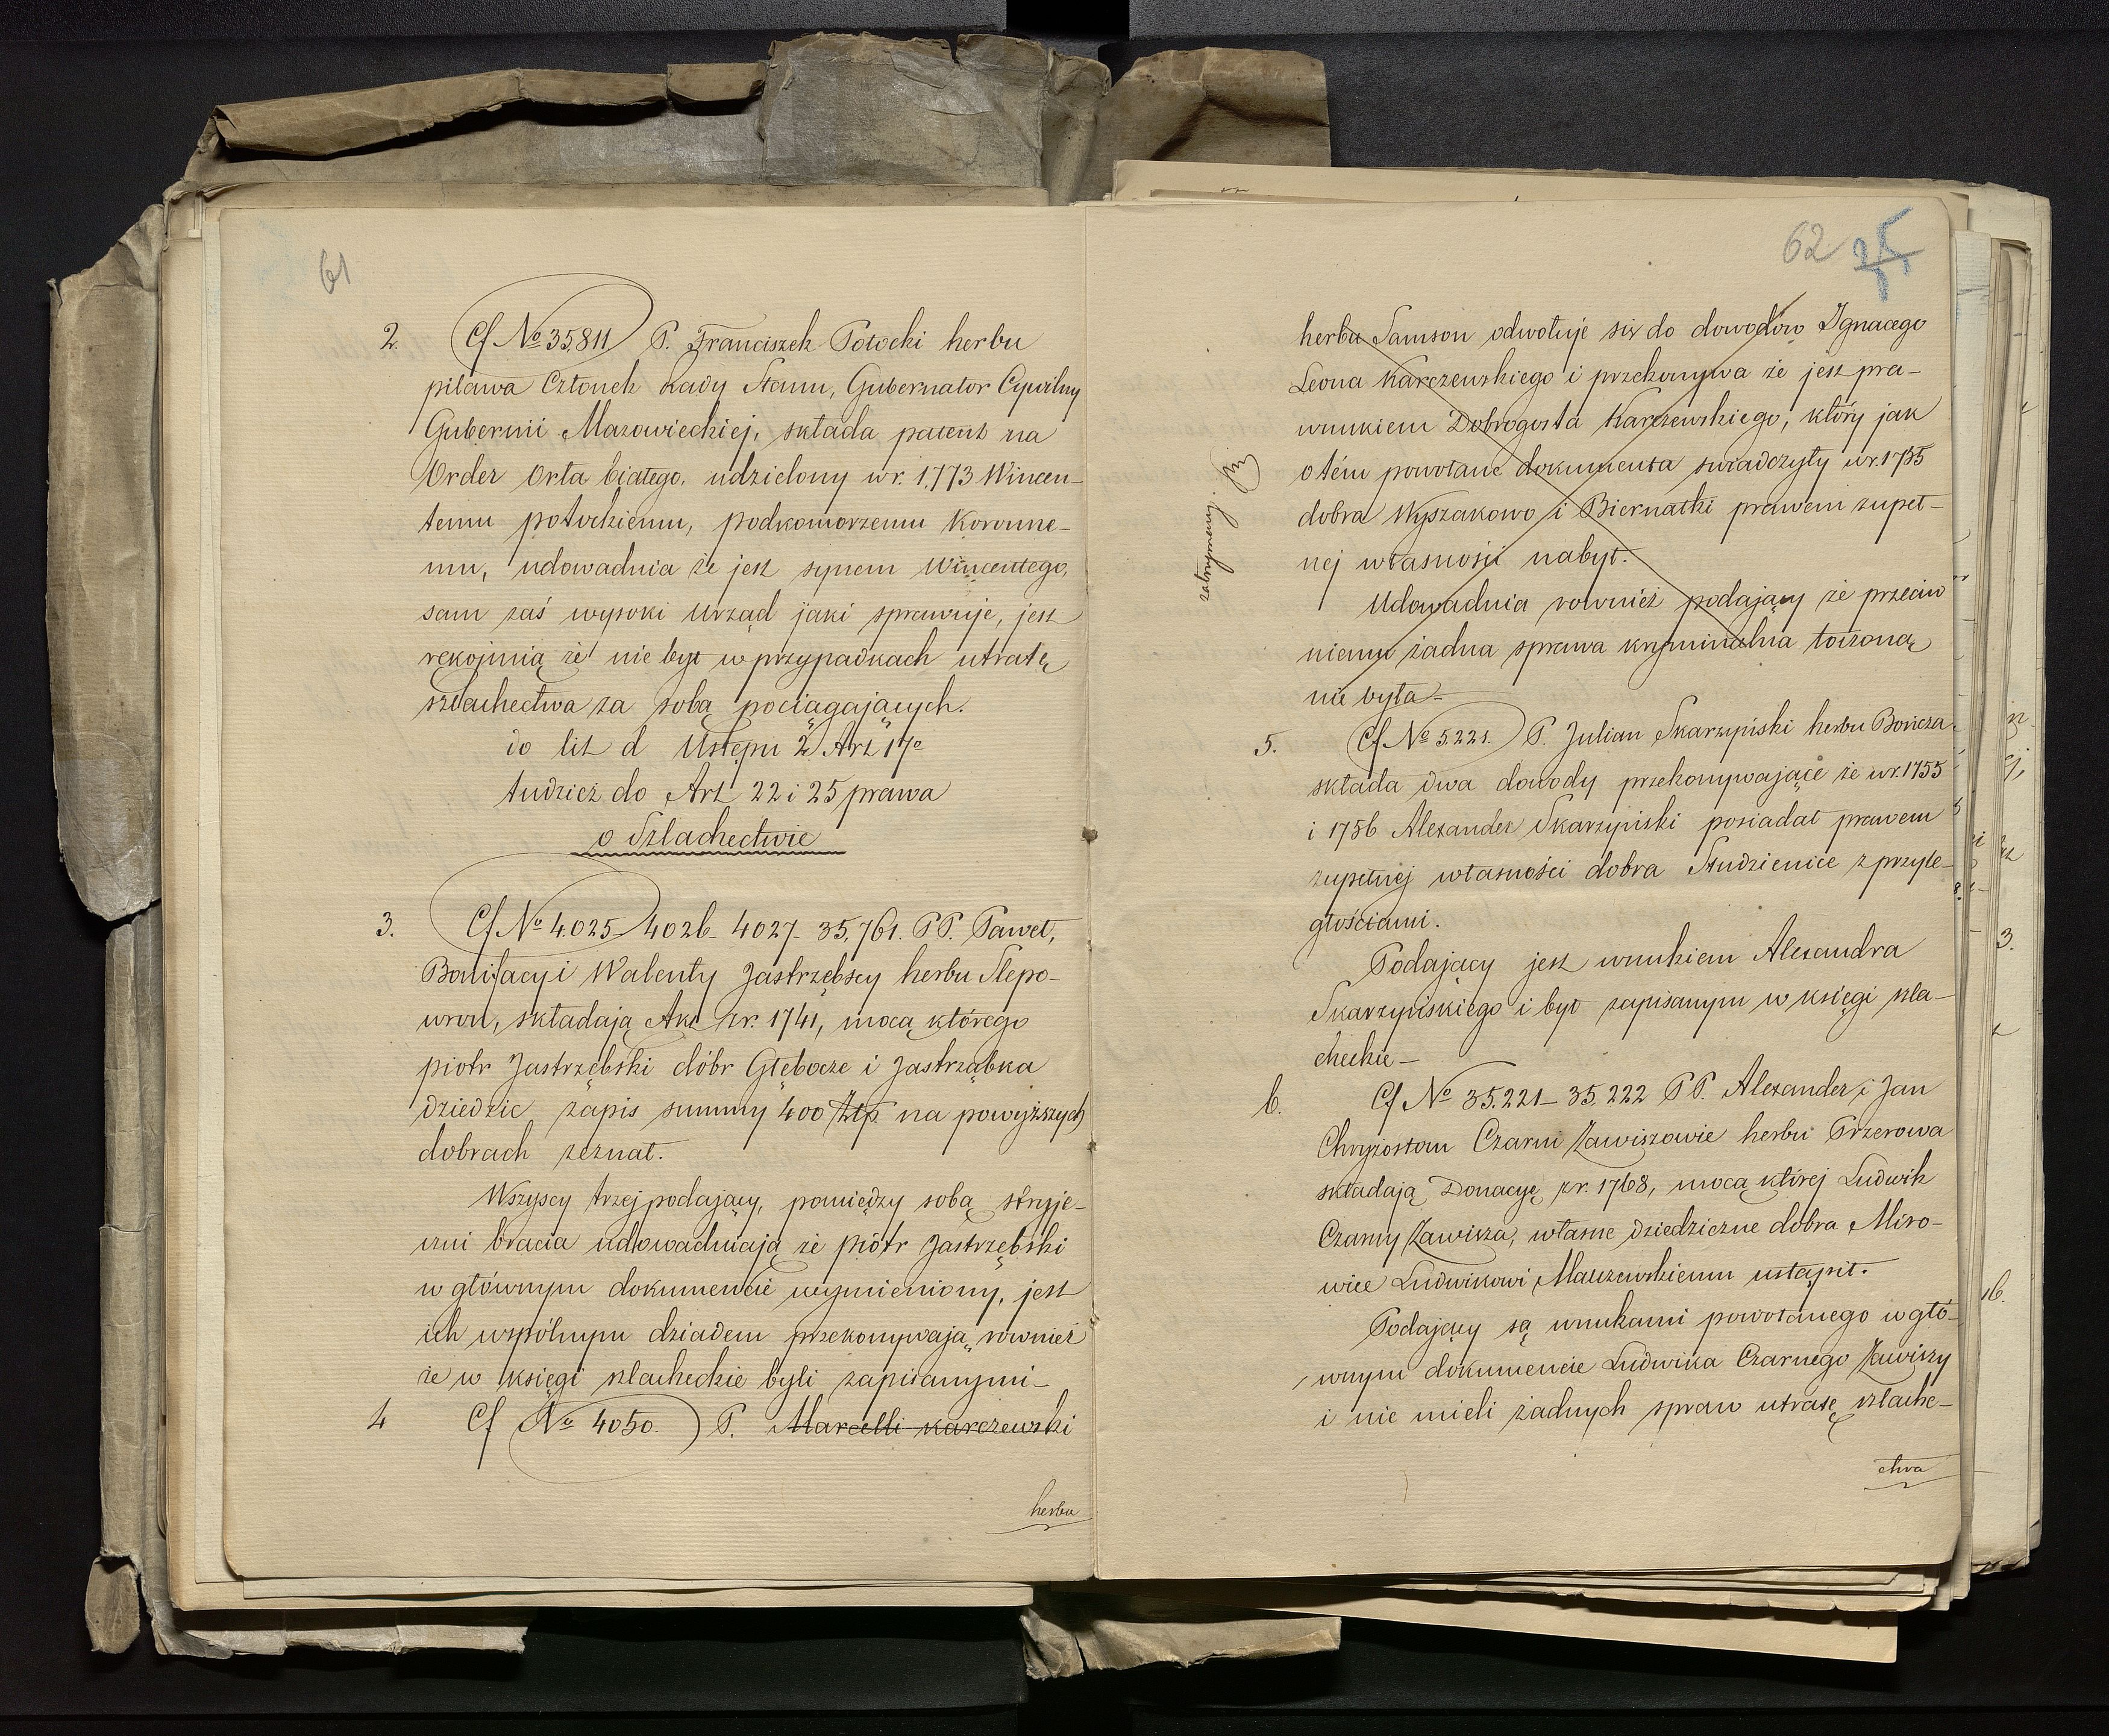 61
2. Cf No 35.811 P. Franciszek Potocki herbu
pilawa Członek Rady Stanu, Gubernator Cywilny
Gubernii Mazowieckiej, składa patent na
Order Orła białego, udzielony w r. 1773 Wincen-
temu potockiemu, podkomorzemu Koronne-
mu, udowadnia że jest synem Wincentego,
sam zaś wysoki Urząd jaki sprawuje, jest
rękojmią że nie był w przypadkach utratę
szlachectwa za sobą pociągających.
do lit d Ustępu 2 Art 17o
tudzież do Art 22 i 25 prawa
o Szlachectwie
3. Cf No 4.025 4026- 4027- 35,761. PP. Paweł,
Bonifacy i Walenty Jastrzębscy herbu Ślepo-
wron, składają Akt z r. 1741, mocą którego
piotr Jastrzębski dóbr Głębocze i Jastrząbka
dziedzic zapis summy 400 Złp. na powyższych
dobrach zeznał.
Wszyscy trzej podający, pomiędzy sobą stryje-
czni bracia udowadniają że piotr Jastrzębski
w głównym dokumencie wymieniony, jest
ich wspólnym dziadem przekonywają również
że w księgi szlacheckie byli zapisanymi-
4 Cf No 4050. P. Marcelli Karczewski
herbu
62 25
herbu Samson odwołuje się do dowodów Ignacego
Leona Karczewskiego i przekonywa że jest pra-
wnukiem Dobrogosta Karczewskiego, który jak
o tém powołane dokumenta świadczyły w r. 1735
dobra Wyszakowo i Biernatki prawem zupeł-
nej własności nabył.
Udowadnia również podający że przeciw
niemu żadna sprawa kryminalna toczoną
nie była-
zatrzymany
5. Cf No 5.221. P. Julian Skarzyński herbu Bończa
składa dwa dowody przekonywające że w r. 1755
i 1756 Alexander Skarzyński posiadał prawem
zupełnej własności dobra Studzienice z przyle-
głościami.
Podający jest wnukiem Alexandra
Skarzyńskiego i był zapisanym w księgi szla-
checkie-
6. Cf No 35.221- 35.222 PP. Alexander i Jan
Chryzostom Czarni Zawiszowie herbu Przerowa
składają Donacyę z r. 1768, mocą której Ludwik
Czarny Zawisza, własne dziedziczne dobra Miro-
wice Ludwikowi ustąpił.
Podający są wnukami powołanego w głó-
wnym dokumencie Ludwika Czarnego Zawiszy
i nie mieli żadnych spraw utratę szlache-
ctwa